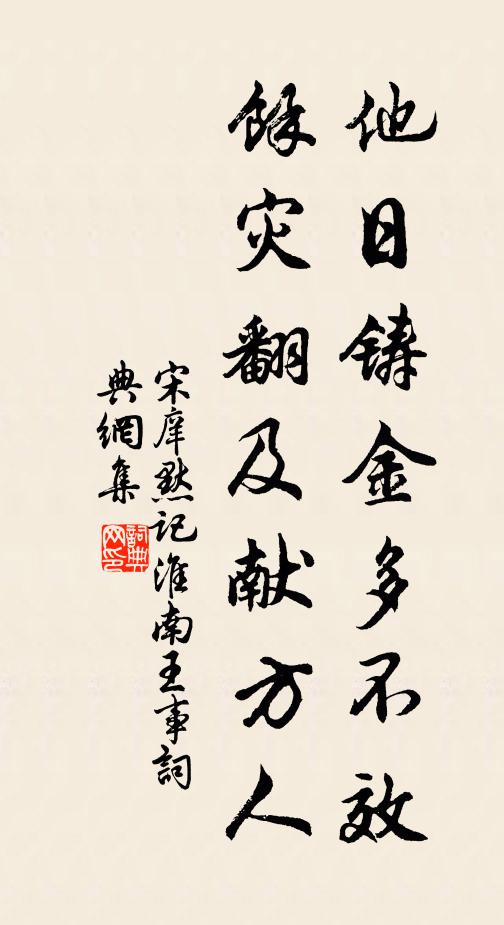 他日铸金多不效
餘灾翻及献方人
宋庠默记淮南王事詞
典網集
詞典網印